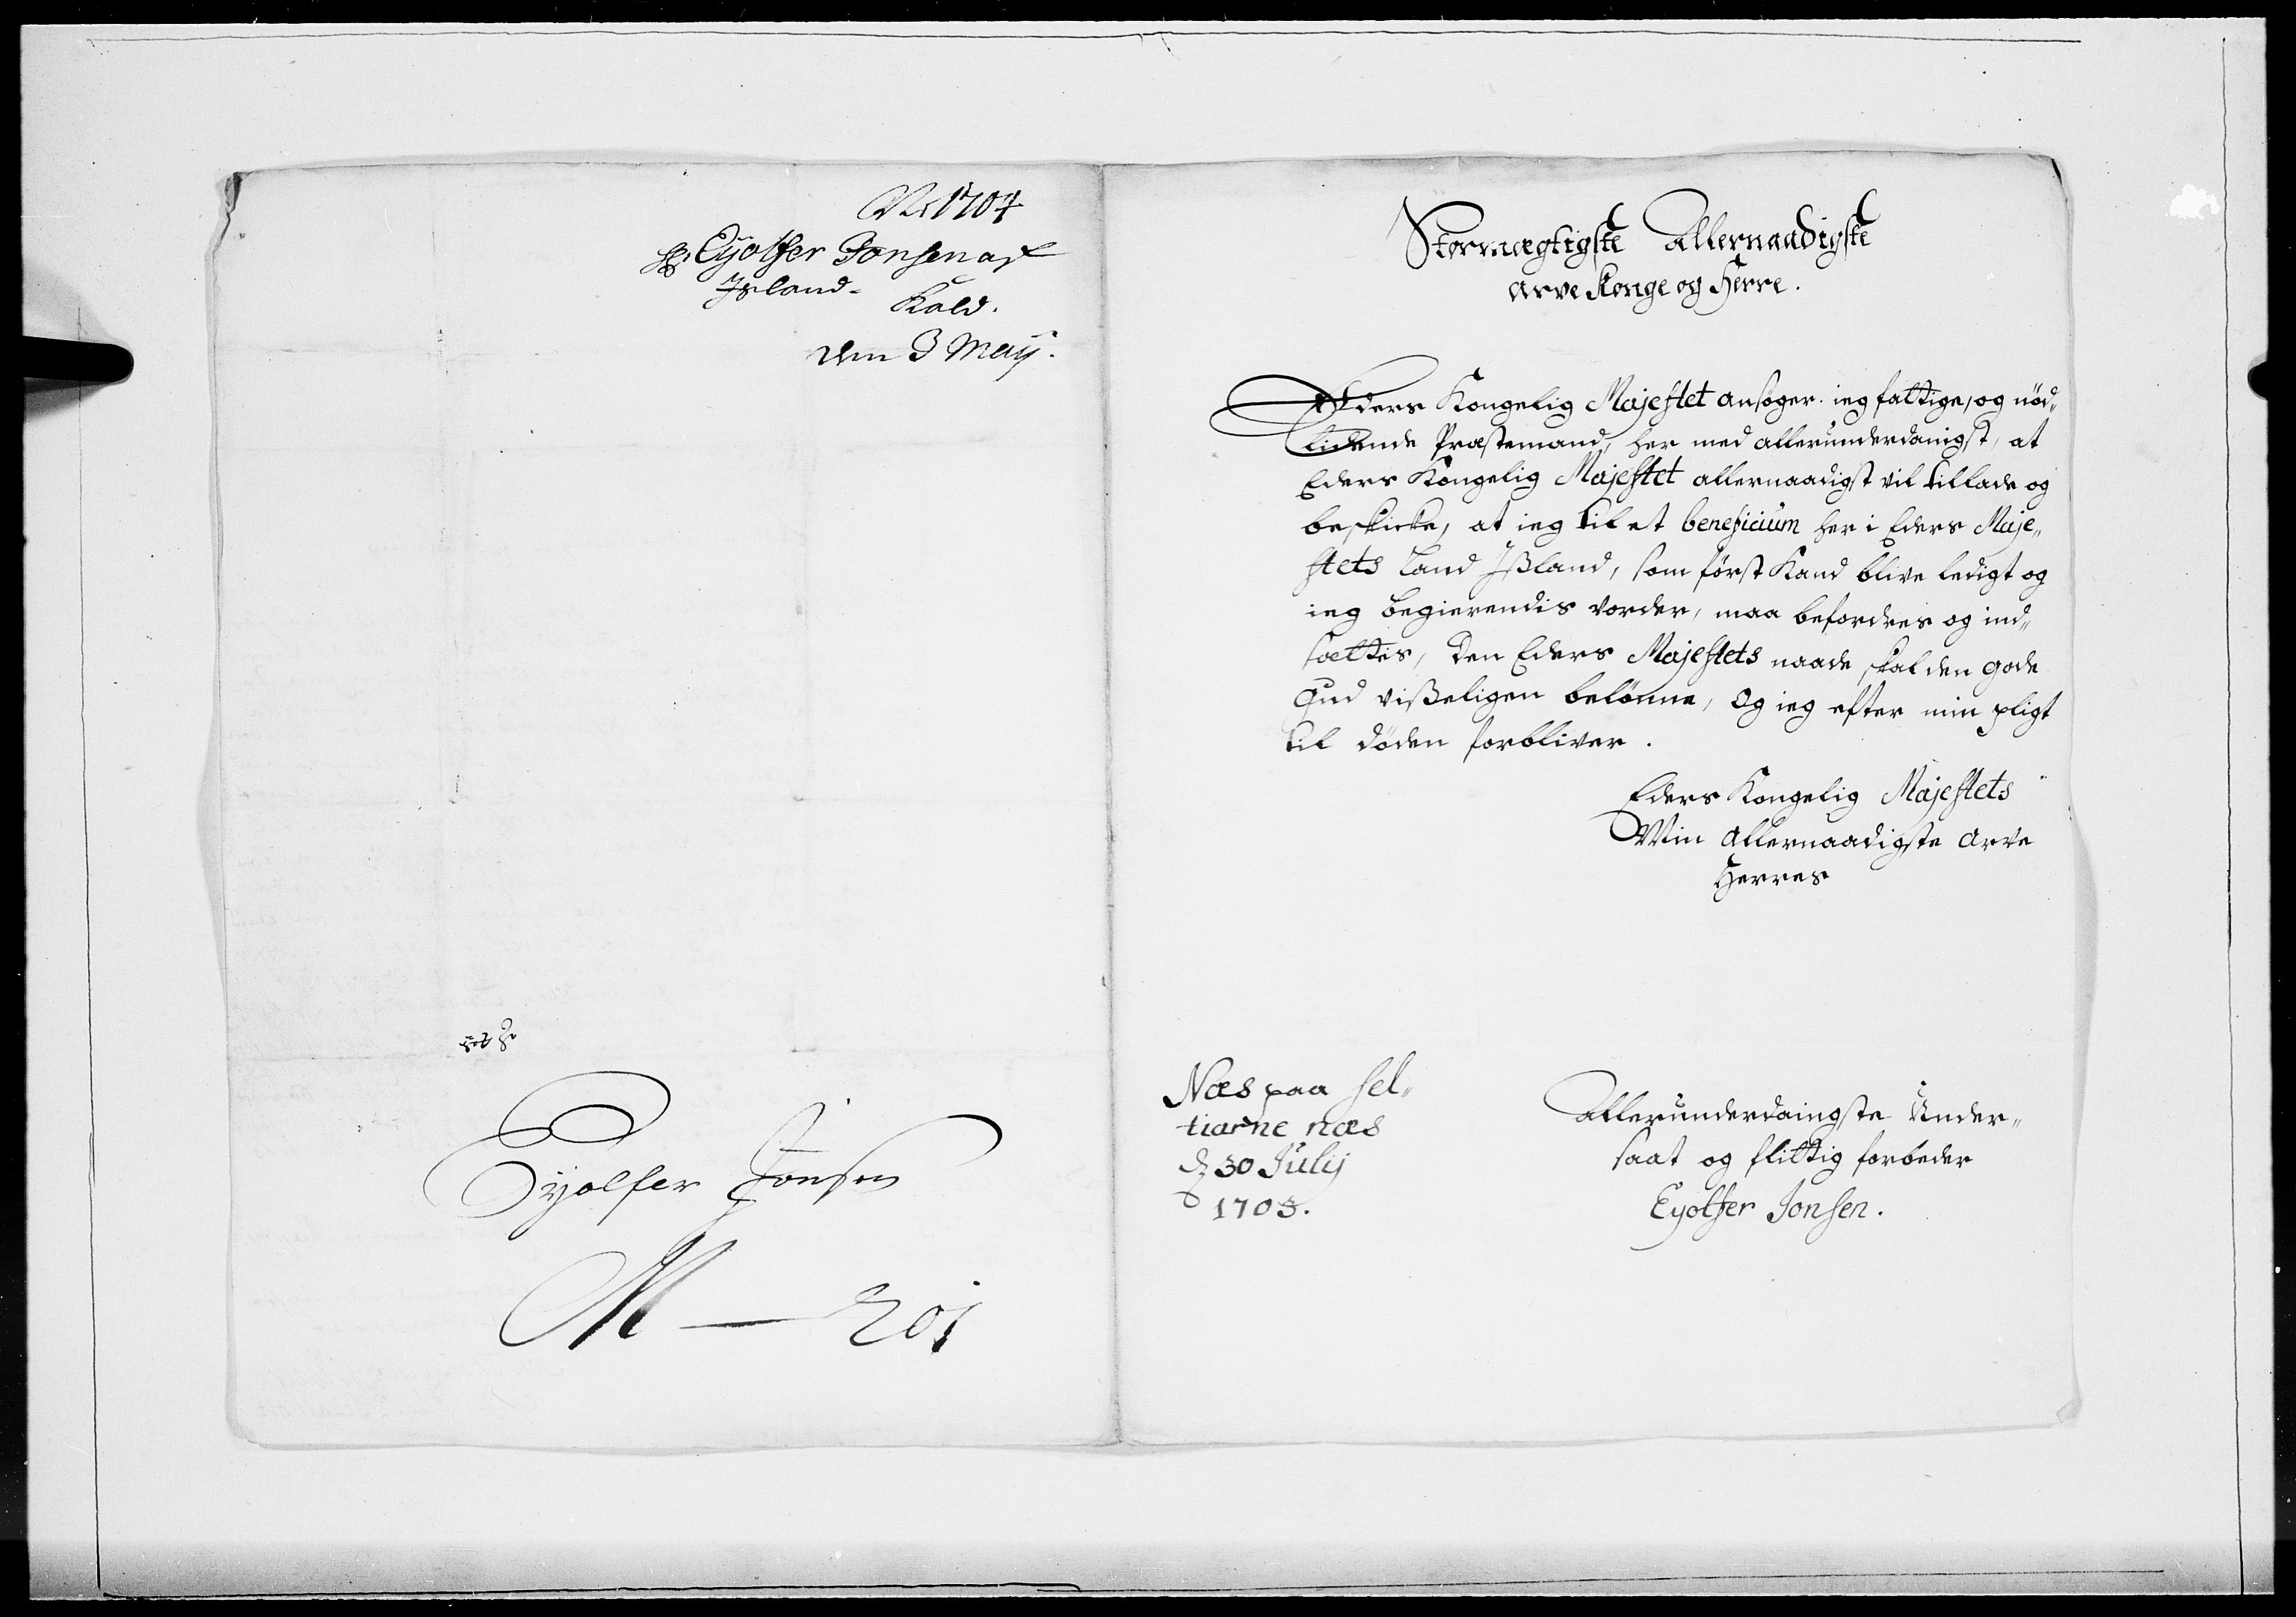 1704
Hr. Eyolfer Jonsen af
Island.
Kald.
den 3 Maij.
Eyolfer Jonsen
M — 201
Stormægtigste Allernaadigste
Arve Konge og Herre.
Eders Kongelig Majestet ansøger ieg fattige, og nød„
lidende Præstemand, her med allerunderdanigst, at
Eders Kongelig Majestet allernaadigst vil tillade og
beskicke, at ieg til et beneficium her i Eders Maje„
stets Land Ißland, som først Kand blive ledigt og
ieg begierendis vorder, maa befordres og ind„
sættes, Den Eders Majestets naade skal den gode
Gud vißeligen belønne, Og ieg efter min pligt
til døden forbliver.
Eders Kongelig Majestets
Min Allernaadigste Arve
Herres
Næs paa Sel„
tiarne næs
d. 30 Julij
1703.
Allerunderdanigste Under„
saat og flittig forbeder
Eyolfer Jonsen.